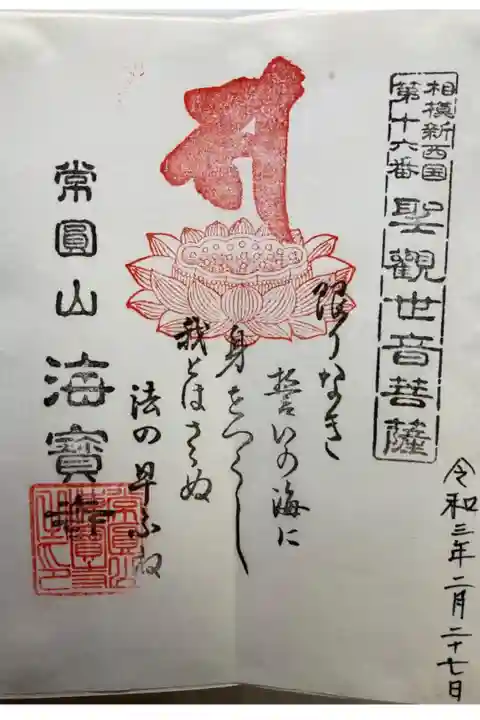 相模新西国
第十六番
聖觀世音菩薩
令和三年二月二十七日
限りなき
誓いの海に
身をつくし
我とはさらぬ
法の早ふね
常圓山
海寶